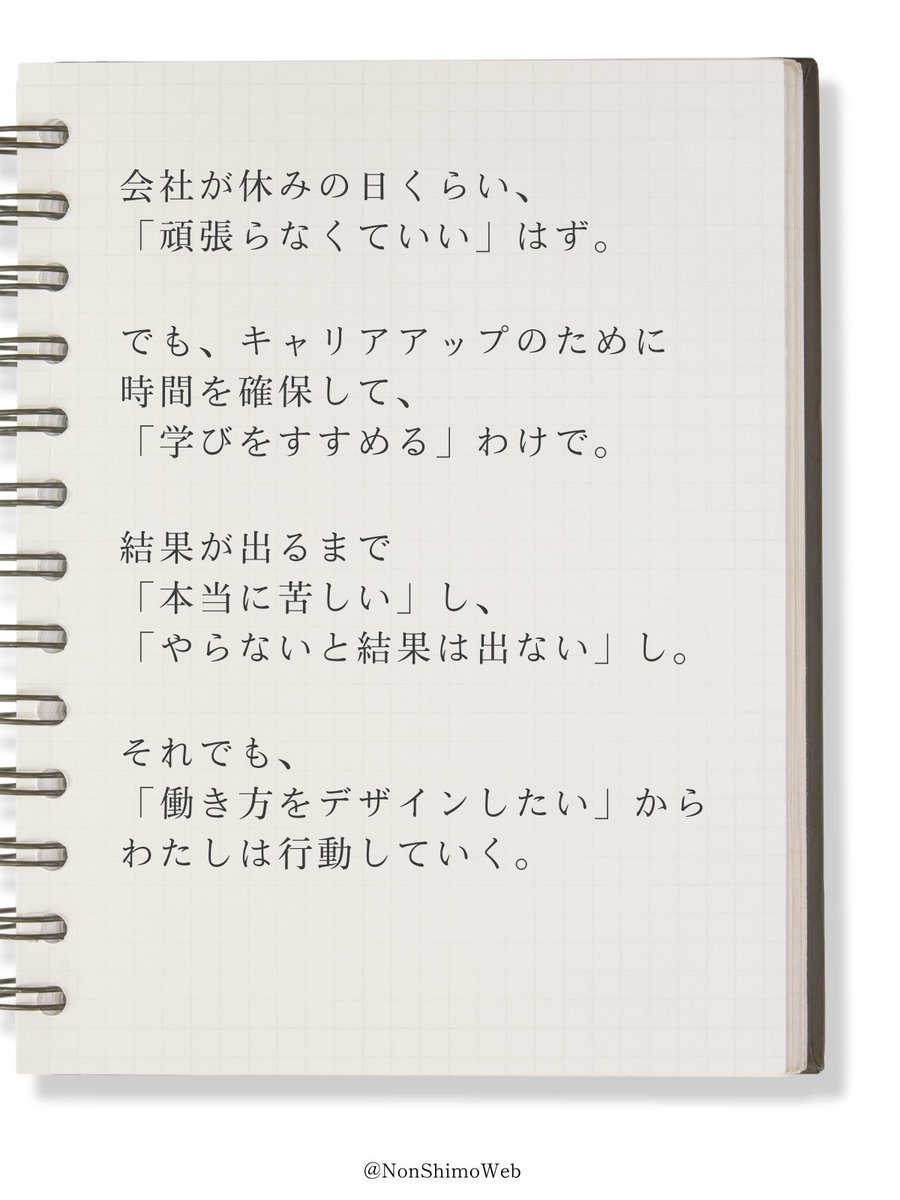 会社が休みの日くらい、
「頑張らなくていい」はず。
でも、キャリアアップのために
時間を確保して、
「学びをすすめる」わけで。
結果が出るまで
「本当に苦しい」し、
「やらないと結果は出ない」し。
それでも、
「働き方をデザインしたい」から
わたしは行動していく。
@NonShimoWeb